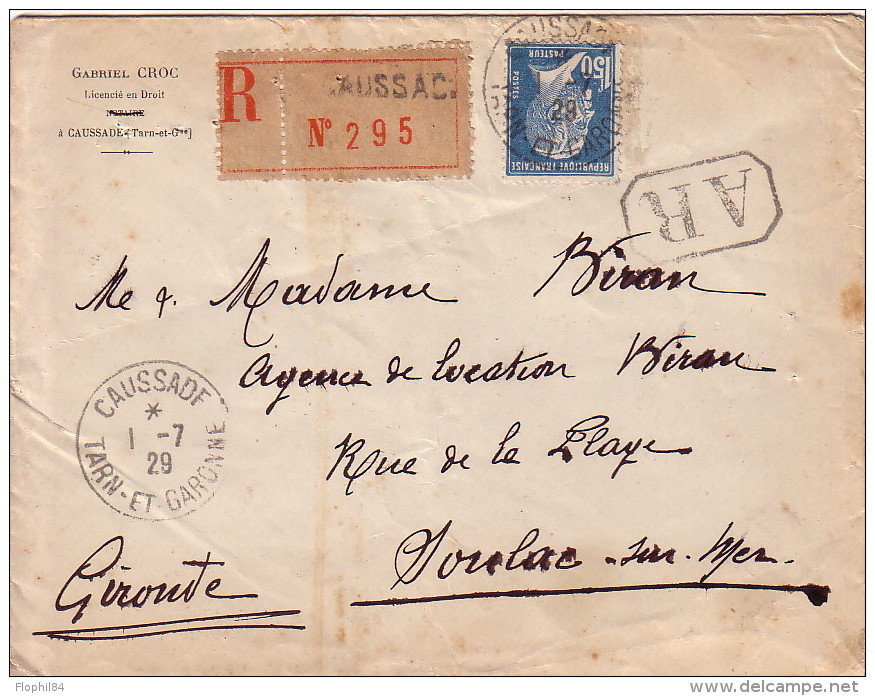 GABRIEL CROC
Licencié en Droit
NOTAIRE
à CAUSSADE [Tarn-et-Gne]
R
CAUSSAC
No 295
1F50
PASTEUR
POSTES
REPVBLIQVE FRANÇAISE
29
TARN-ET-GARONNE
AR
Me & Madame Biran
Agence de location Biran
Rue de la Plage
Soulac-sur-Mer.
Gironde
CAUSSADE
*
1 -7
29
TARN-ET-GARONNE
Flophil84
delcampe.net